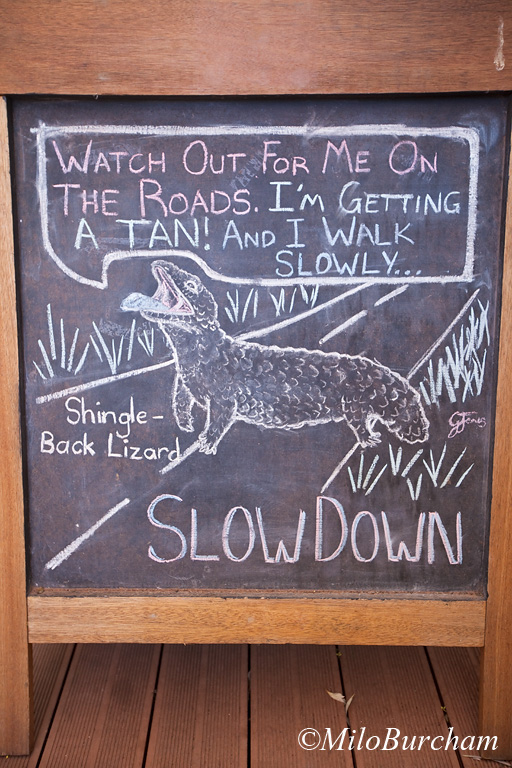 WATCH OUT FOR ME ON
THE ROADS. I'M GETTING
A TAN! AND I WALK
SLOWLY...
Shingle-
Back Lizard
SLOW DOWN
©MiloBurcham